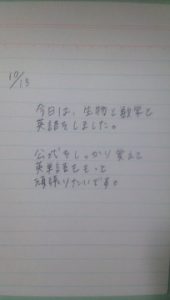 10/15
今日は、生物と数学と
英語をしました。
公式をしっかり覚えて
英単語をもっと
頑張りたいです。